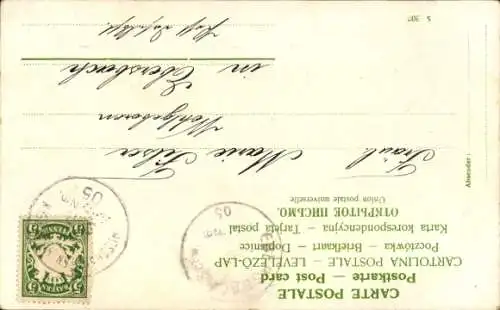 CARTE POSTALE
Postkarte — Post card
CARTOLINA POSTALE — LEVELEZŐ-LAP
Pocztówka — Briefkaart — Dopisnice
Karta korespondencyjna — Tarjeta postal
ОТКРЫТОЕ ПИСЬМО.
Union postale universelle
Absender:
Fräul. Marie Filser
Wohlgeboren
in Ebersbach
Post
S. 307
5 5
BAYERN
PFENNIG
05
05